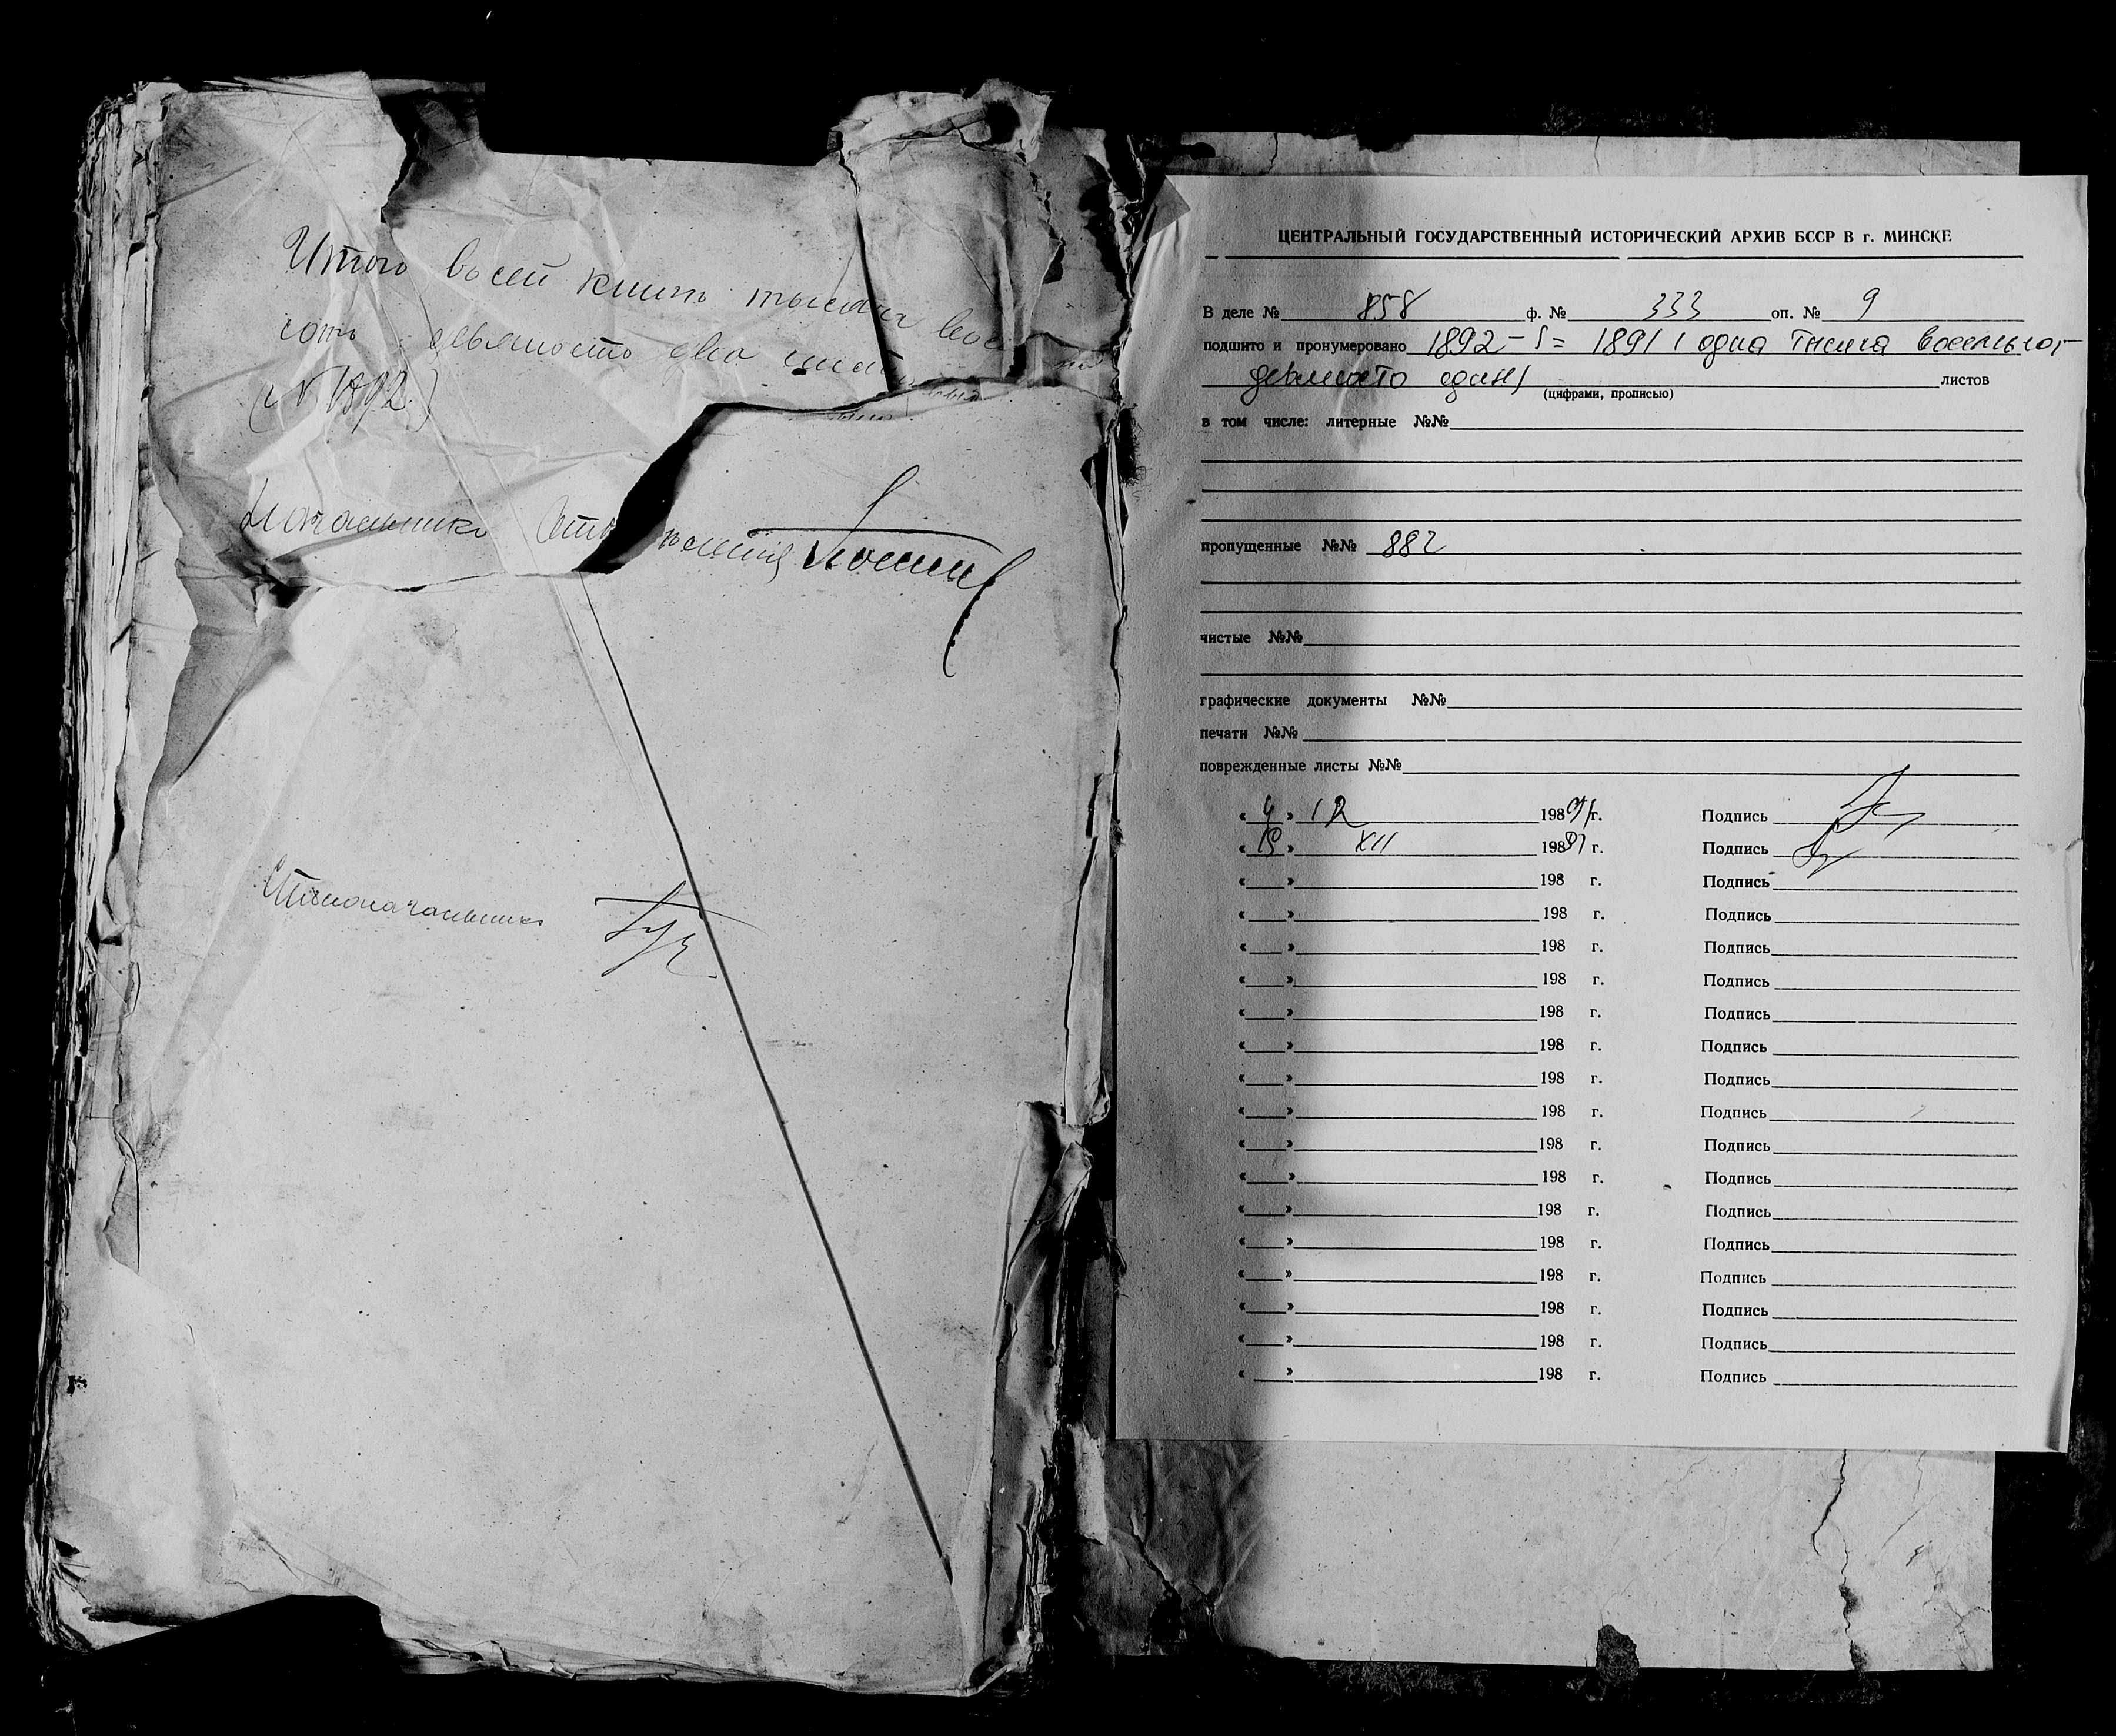 Итого въ сей книгѣ тысяча вос
сотъ девяносто два лист
(№ 1892.)
Начальникъ Отд
Столоначальникъ
ЦЕНТРАЛЬНЫЙ ГОСУДАРСТВЕННЫЙ ИСТОРИЧЕСКИЙ АРХИВ БССР В г. МИНСКЕ
В деле № 858 ф. № 333 оп. № 9
подшито и пронумеровано 1892 – 1 = 1891 (одна тысяча восемьсот
девяносто один) листов
(цифрами, прописью)
в том числе: литерные №№
пропущенные №№ 882
чистые №№
графические документы №№
печати №№
поврежденные листы №№
« 4 » 12 1989 г. Подпись
« 19 » XII 198 г. Подпись
« » 198 г. Подпись
« » 198 г. Подпись
« » 198 г. Подпись
« » 198 г. Подпись
« » 198 г. Подпись
« » 198 г. Подпись
« » 198 г. Подпись
« » 198 г. Подпись
« » 198 г. Подпись
« » 198 г. Подпись
« » 198 г. Подпись
« » 198 г. Подпись
« » 198 г. Подпись
« » 198 г. Подпись
« » 198 г. Подпись
« » 198 г. Подпись